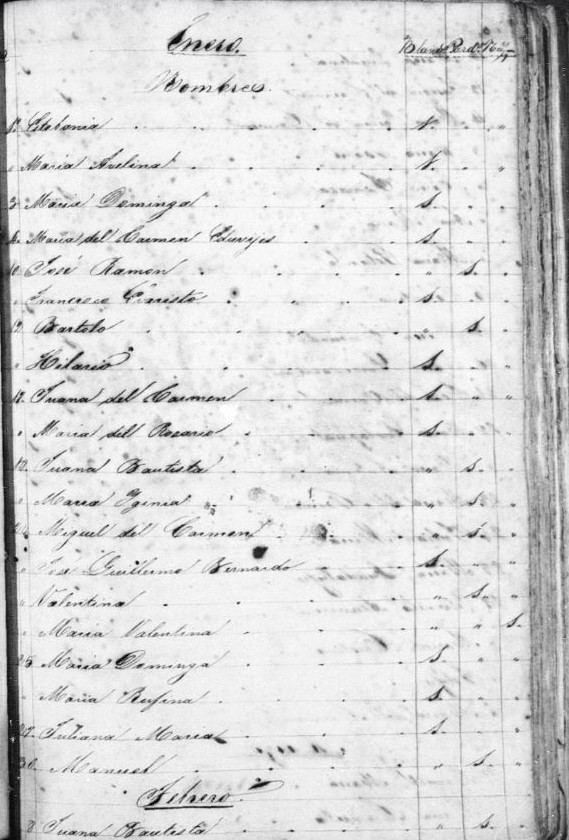 Enero.
Nombres.
Estefania
Maria Avelina
3 Maria Dominga
4. Maria del Carmen Eduvijes
10 José Ramon
Francisco Evaristo
12 Bartolo
Hilario
17. Juana del Carmen
Maria del Rosario
Juana Bautista
Maria Yginia
Miguel del Carmen
José Guillermo Bernardo
Valentina
Maria Valentina
25 Maria Dominga
Maria Rufina
27 Juliana Maria
30. Manuel
Febrero.
Juana Bautista